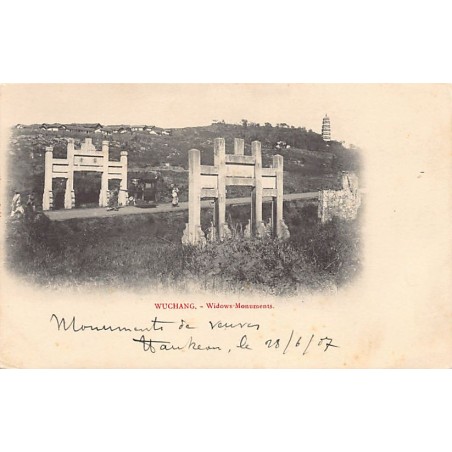 WUCHANG, - Widows-Monuments.
Monuments de veuves
Hankeou, le 28/6/07